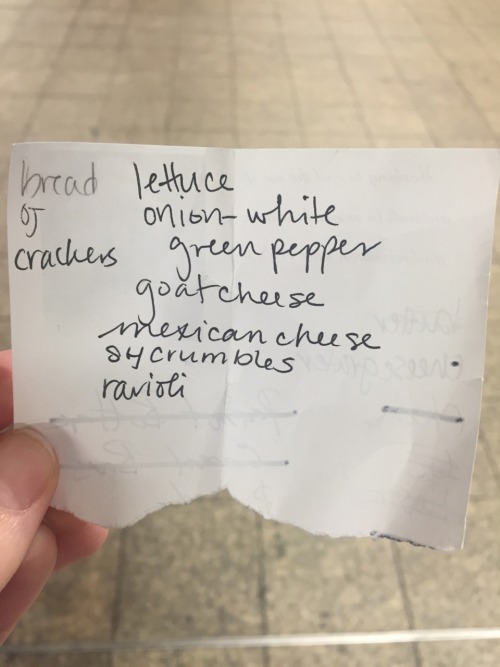 bread lettuce
OJ onion-white
crackers green pepper
goat cheese
mexican cheese
sy crumbles
ravioli